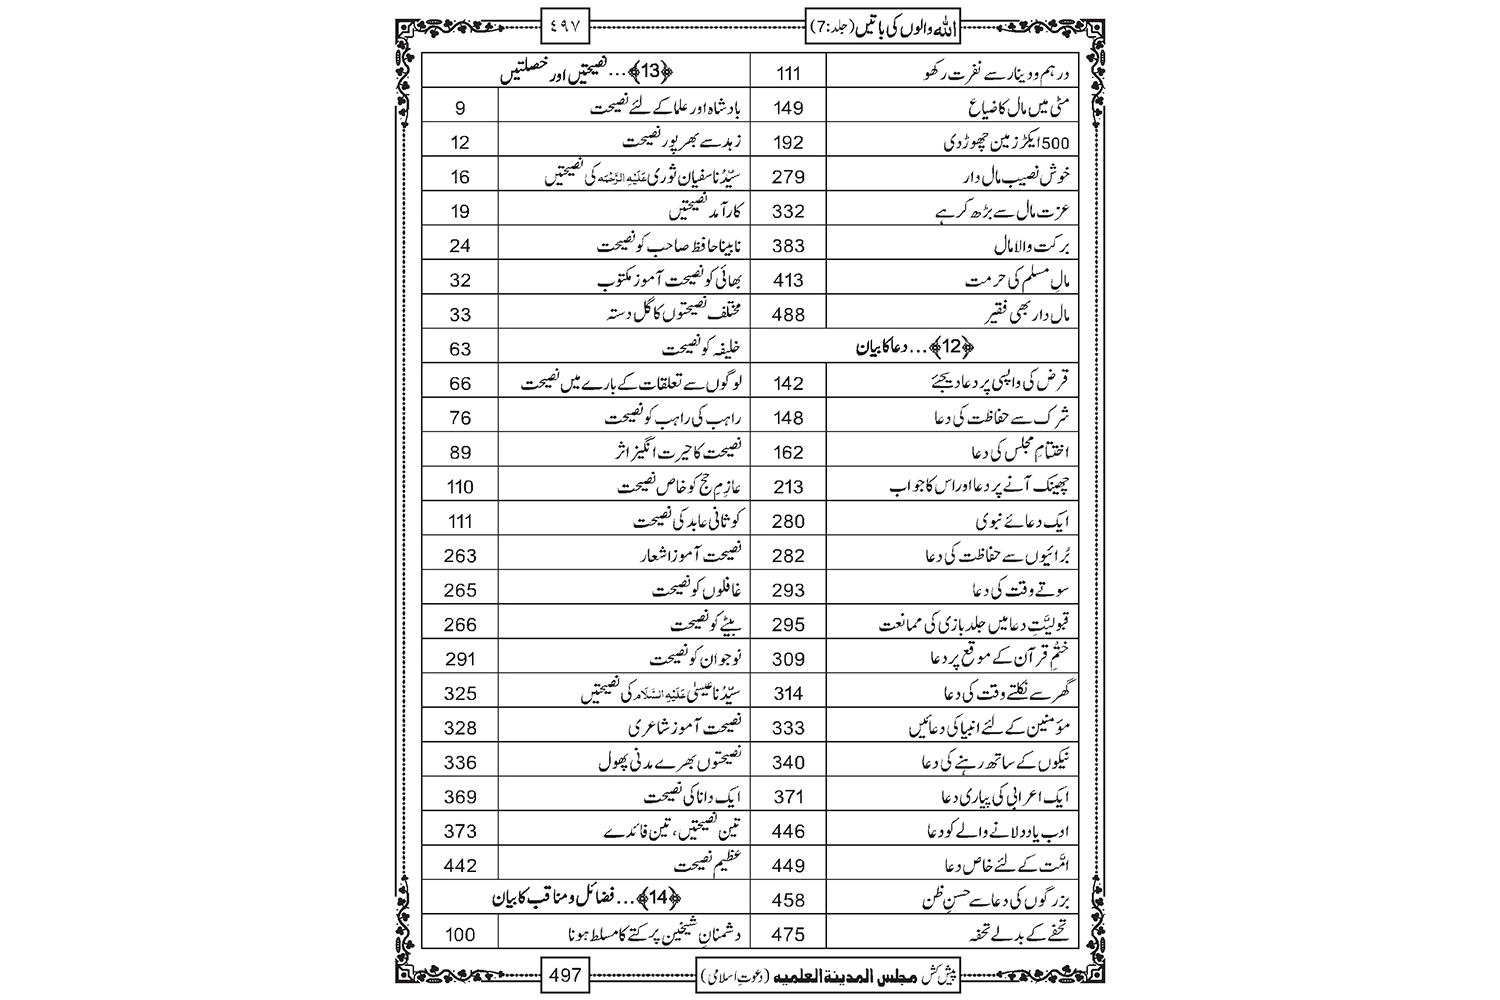 اللہ والوں کی باتیں (جلد:7)
٤٩٧
درہم ودینار سے نفرت رکھو 111
مٹی میں مال کا ضیاع 149
500 ایکڑ زمین چھوڑ دی 192
خوش نصیب مال دار 279
عزت مال سے بڑھ کر ہے 332
برکت والا مال 383
مالِ مسلم کی حرمت 413
مال دار بھی فقیر 488
﴿12﴾... دعا کا بیان
قرض کی واپسی پر دعا دیجئے 142
شرک سے حفاظت کی دعا 148
اختتامِ مجلس کی دعا 162
چھینک آنے پر دعا اور اس کا جواب 213
ایک دعائے نبوی 280
بُرائیوں سے حفاظت کی دعا 282
سوتے وقت کی دعا 293
قبولیَّتِ دعا میں جلد بازی کی ممانعت 295
ختْمِ قرآن کے موقع پر دعا 309
گھر سے نکلتے وقت کی دعا 314
مؤمنین کے لئے انبیا کی دعائیں 333
نیکوں کے ساتھ رہنے کی دعا 340
ایک اعرابی کی پیاری دعا 371
ادب یاد دلانے والے کو دعا 446
امَّت کے لئے خاص دعا 449
بزرگوں کی دعا سے حسنِ ظن 458
تحفے کے بدلے تحفہ 475
﴿13﴾... نصیحتیں اور خصلتیں
بادشاہ اور علما کے لئے نصیحت 9
زہد سے بھرپور نصیحت 12
سیِّدُنا سفیان ثوری عَلَیْہِ الرَّحْمَہ کی نصیحتیں 16
کارآمد نصیحتیں 19
نابینا حافظ صاحب کو نصیحت 24
بھائی کو نصیحت آموز مکتوب 32
مختلف نصیحتوں کا گل دستہ 33
خلیفہ کو نصیحت 63
لوگوں سے تعلقات کے بارے میں نصیحت 66
راہب کی راہب کو نصیحت 76
نصیحت کا حیرت انگیز اثر 89
عازِمِ حج کو خاص نصیحت 110
کوثانی عابد کی نصیحت 111
نصیحت آموز اشعار 263
غافلوں کو نصیحت 265
بیٹے کو نصیحت 266
نوجوان کو نصیحت 291
سیِّدُنا عیسیٰ عَلَیْہِ السَّلَام کی نصیحتیں 325
نصیحت آموز شاعری 328
نصیحتوں بھرے مدنی پھول 336
ایک دانا کی نصیحت 369
تین نصیحتیں، تین فائدے 373
عظیم نصیحت 442
﴿14﴾... فضائل و مناقب کا بیان
دشمنانِ شیخین پر کتے کا مسلط ہونا 100
پیش کش مجلس المدینۃ العلمیہ (دعوتِ اسلامی)
497